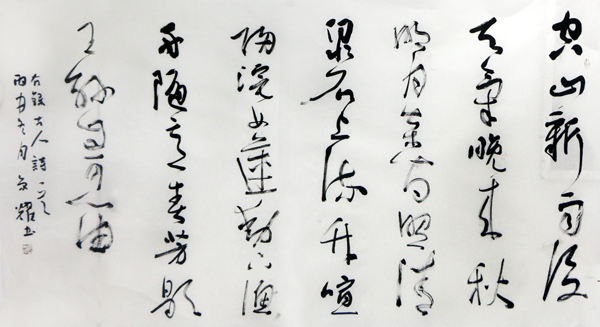 空山新雨後
天氣晚來秋
明月松間照清
泉石上流竹喧
歸浣女蓮動下漁
舟隨意春芳歇
王孫自可留
右錄古人詩一首
冬月耀書